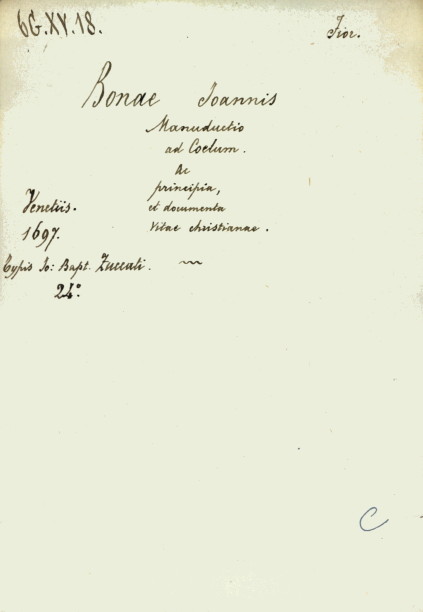 6G.XV.18.
Fior.
Bonae Joannis
Manuductio
ad Coelum.
Ac
principia,
et documenta
vitae christianae.
Venetiis.
1697.
Typis Jo: Bapt. Zuccati.
24°.
C